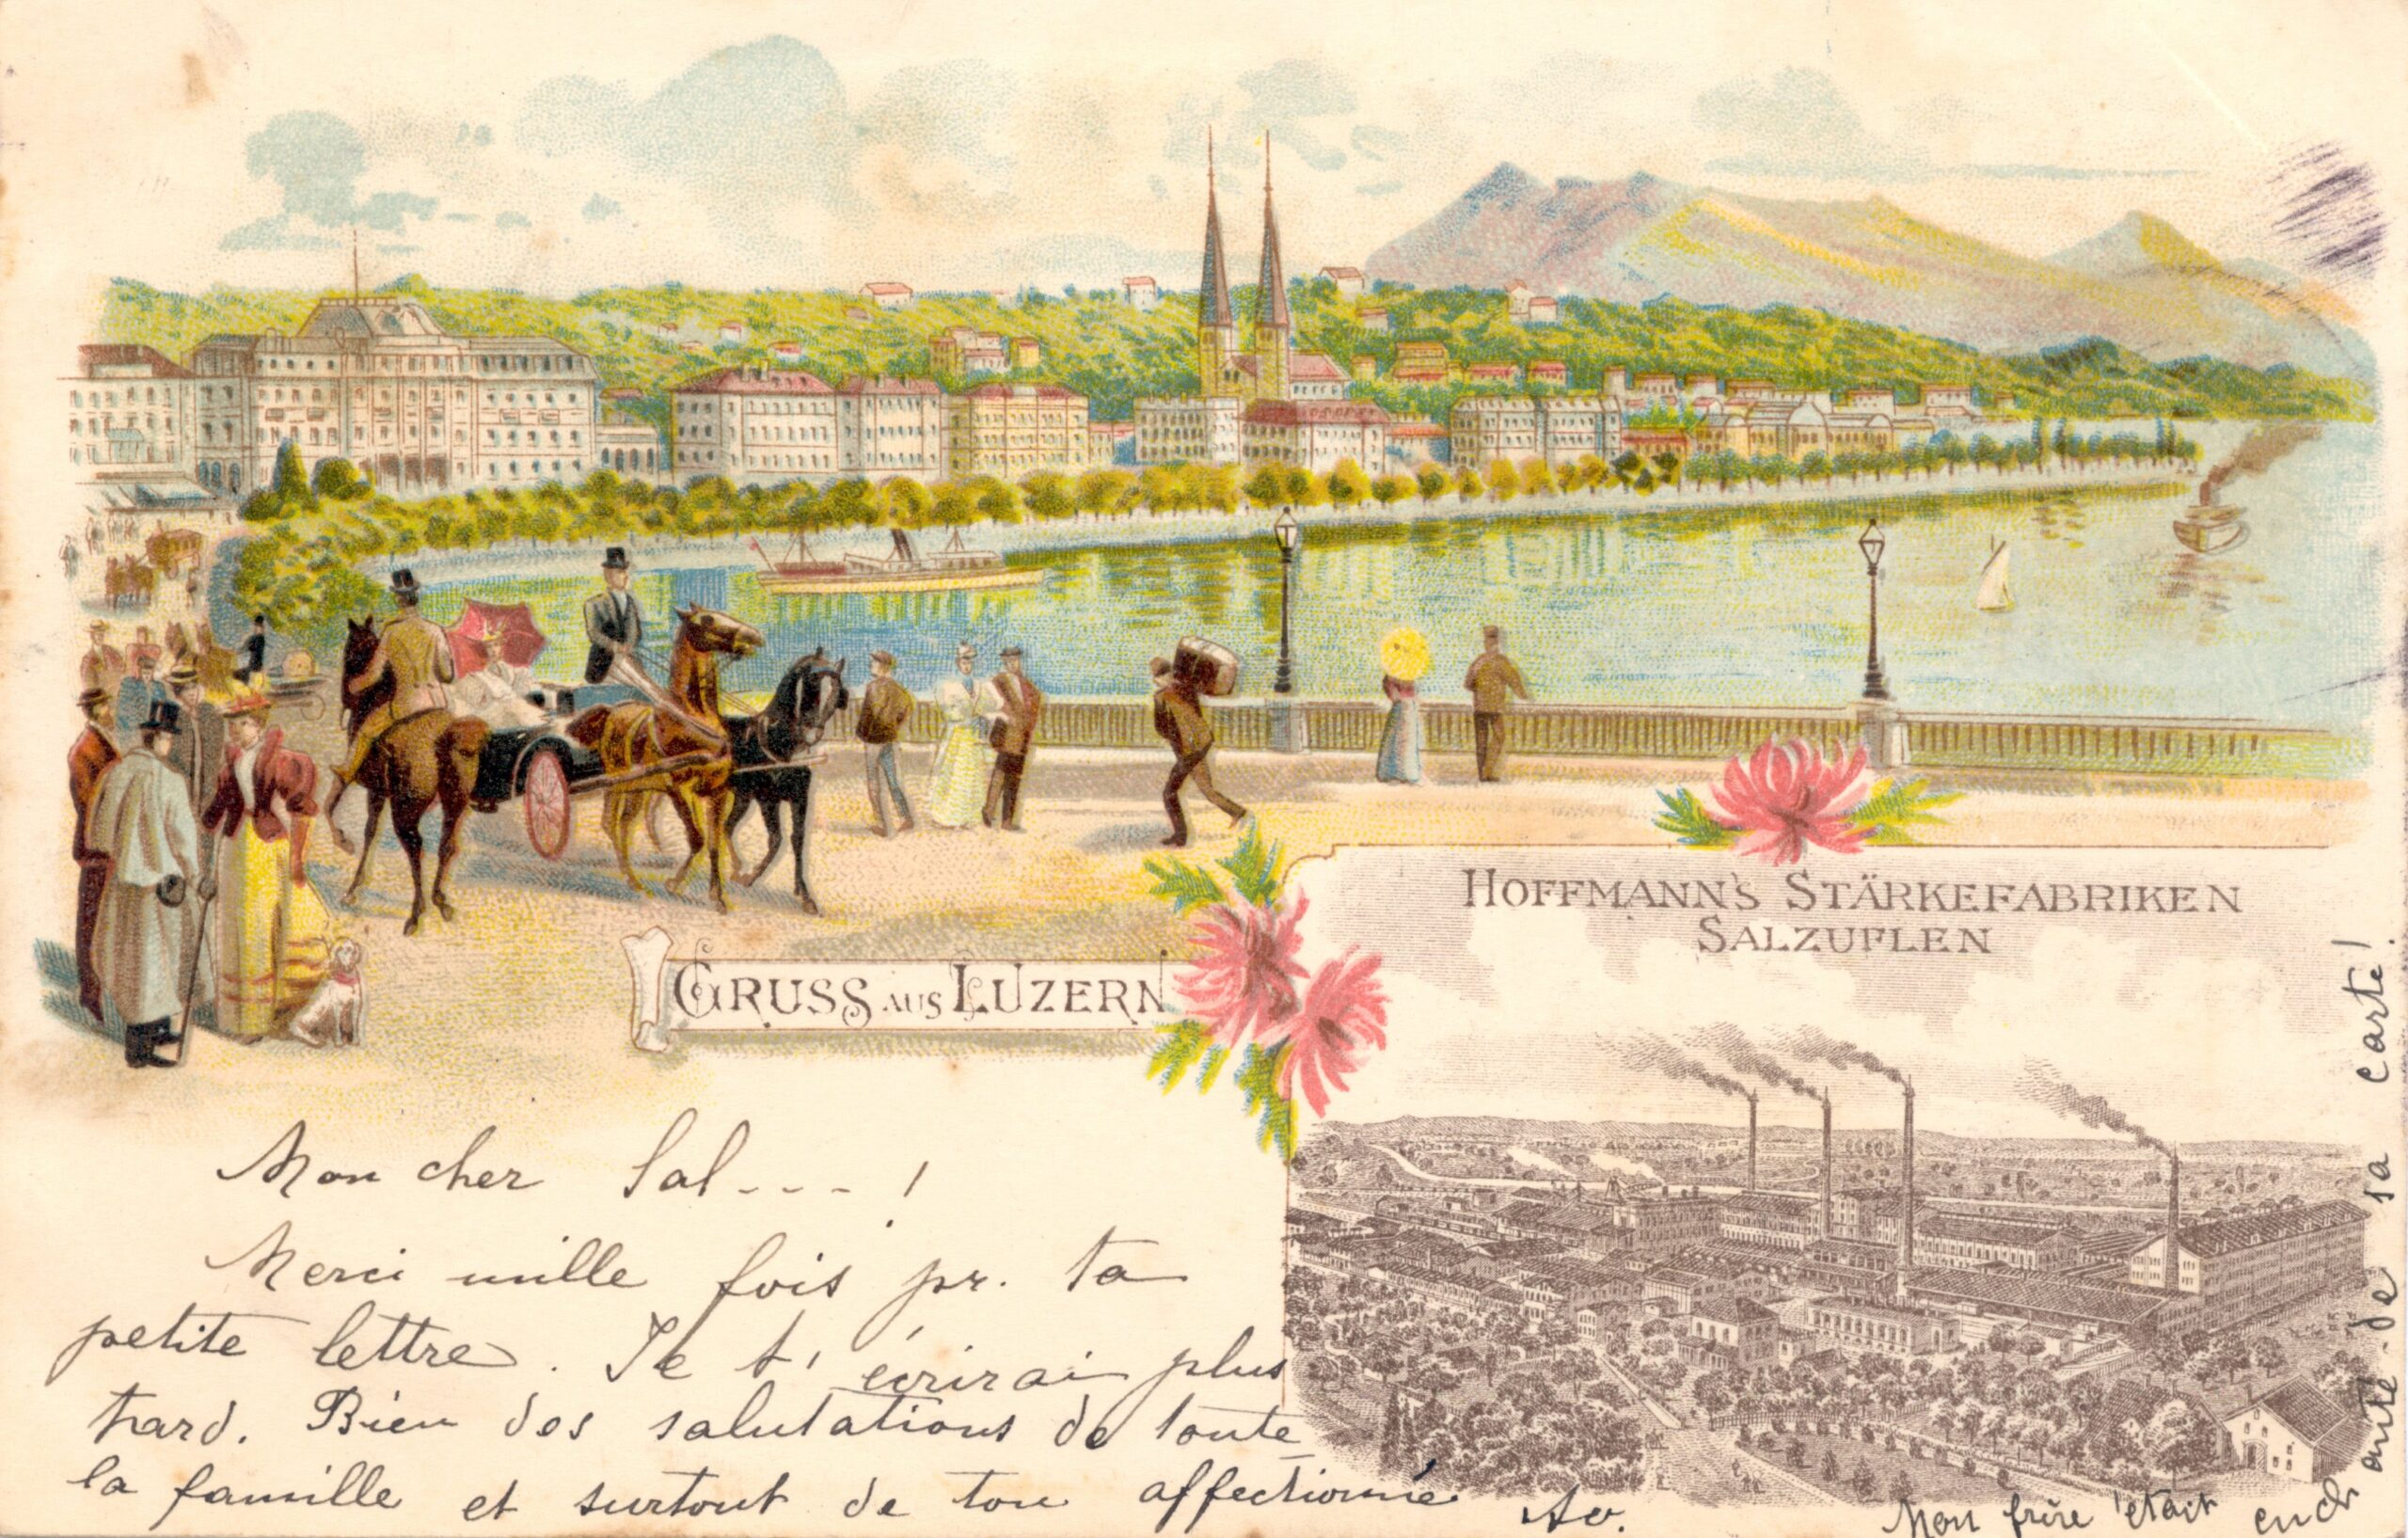 HOFFMANN'S STÄRKEFABRIKEN
SALZUFLEN
GRUSS AUS LUZERN
Mon cher Sal---!
Merci mille fois pr. ta
petite lettre. Je t'écrirai plus
tard. Bien des salutations de toute
la famille et surtout de ton affectionné
Mon frère était enchanté de sa carte!